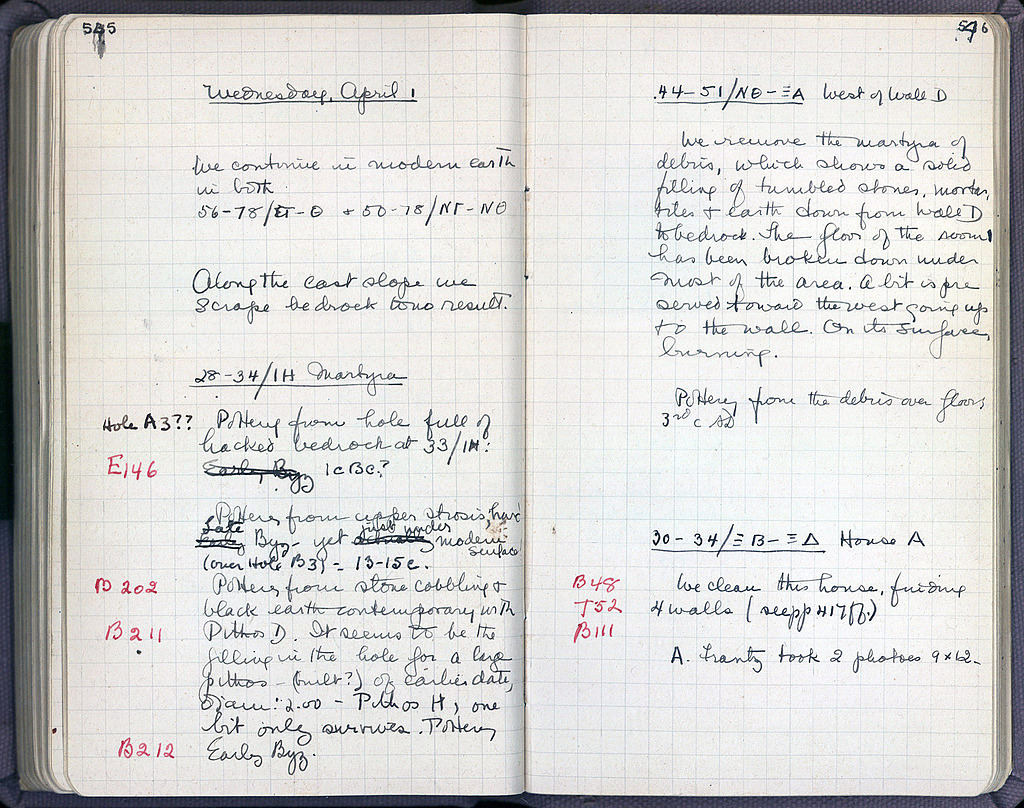 545
Wednesday, April 1
We continue in modern earth
in both
56-78/ΣΤ-Θ + 50-78/ΝΓ-ΝΘ
Along the east slope we
scrape bedrock to no result.
28-34/ΙΗ Martyra
Hole A3?? Pottery from hole full of
hacked bedrock at 33/ΙΗ:
E146 Early Byz 1c BC?
Pottery from upper strosis, hard
Late just under
Early Byz - yet actually modern
surface
(over Hole B3) = 13-15c.
B 202 Pottery from stone cobbling +
black earth contemporary with
B 211 Pithos D. It seems to be the
filling in the hole for a large
pithos - (built?) of earlier date,
Diam: 2.00 - Pithos H, one
bit only survives. Pottery
B 212 Early Byz.
546
44-51/ΝΘ-ΞΑ West of Wall D
We remove the martyra of
debris, which shows a solid
filling of tumbled stones, mortar,
tiles + earth down from Wall D
to bedrock. The floor of the room
has been broken down under
most of the area. A bit is pre
served toward the west going up
to the wall. On its surface,
burning.
Pottery from the debris over floor
3rd c AD
30-34/ΞΒ-ΞΔ House A
B48 We clean this house, finding
T52 4 walls (see pp 417ff.)
B111
A. Frantz took 2 photoes 9x12-